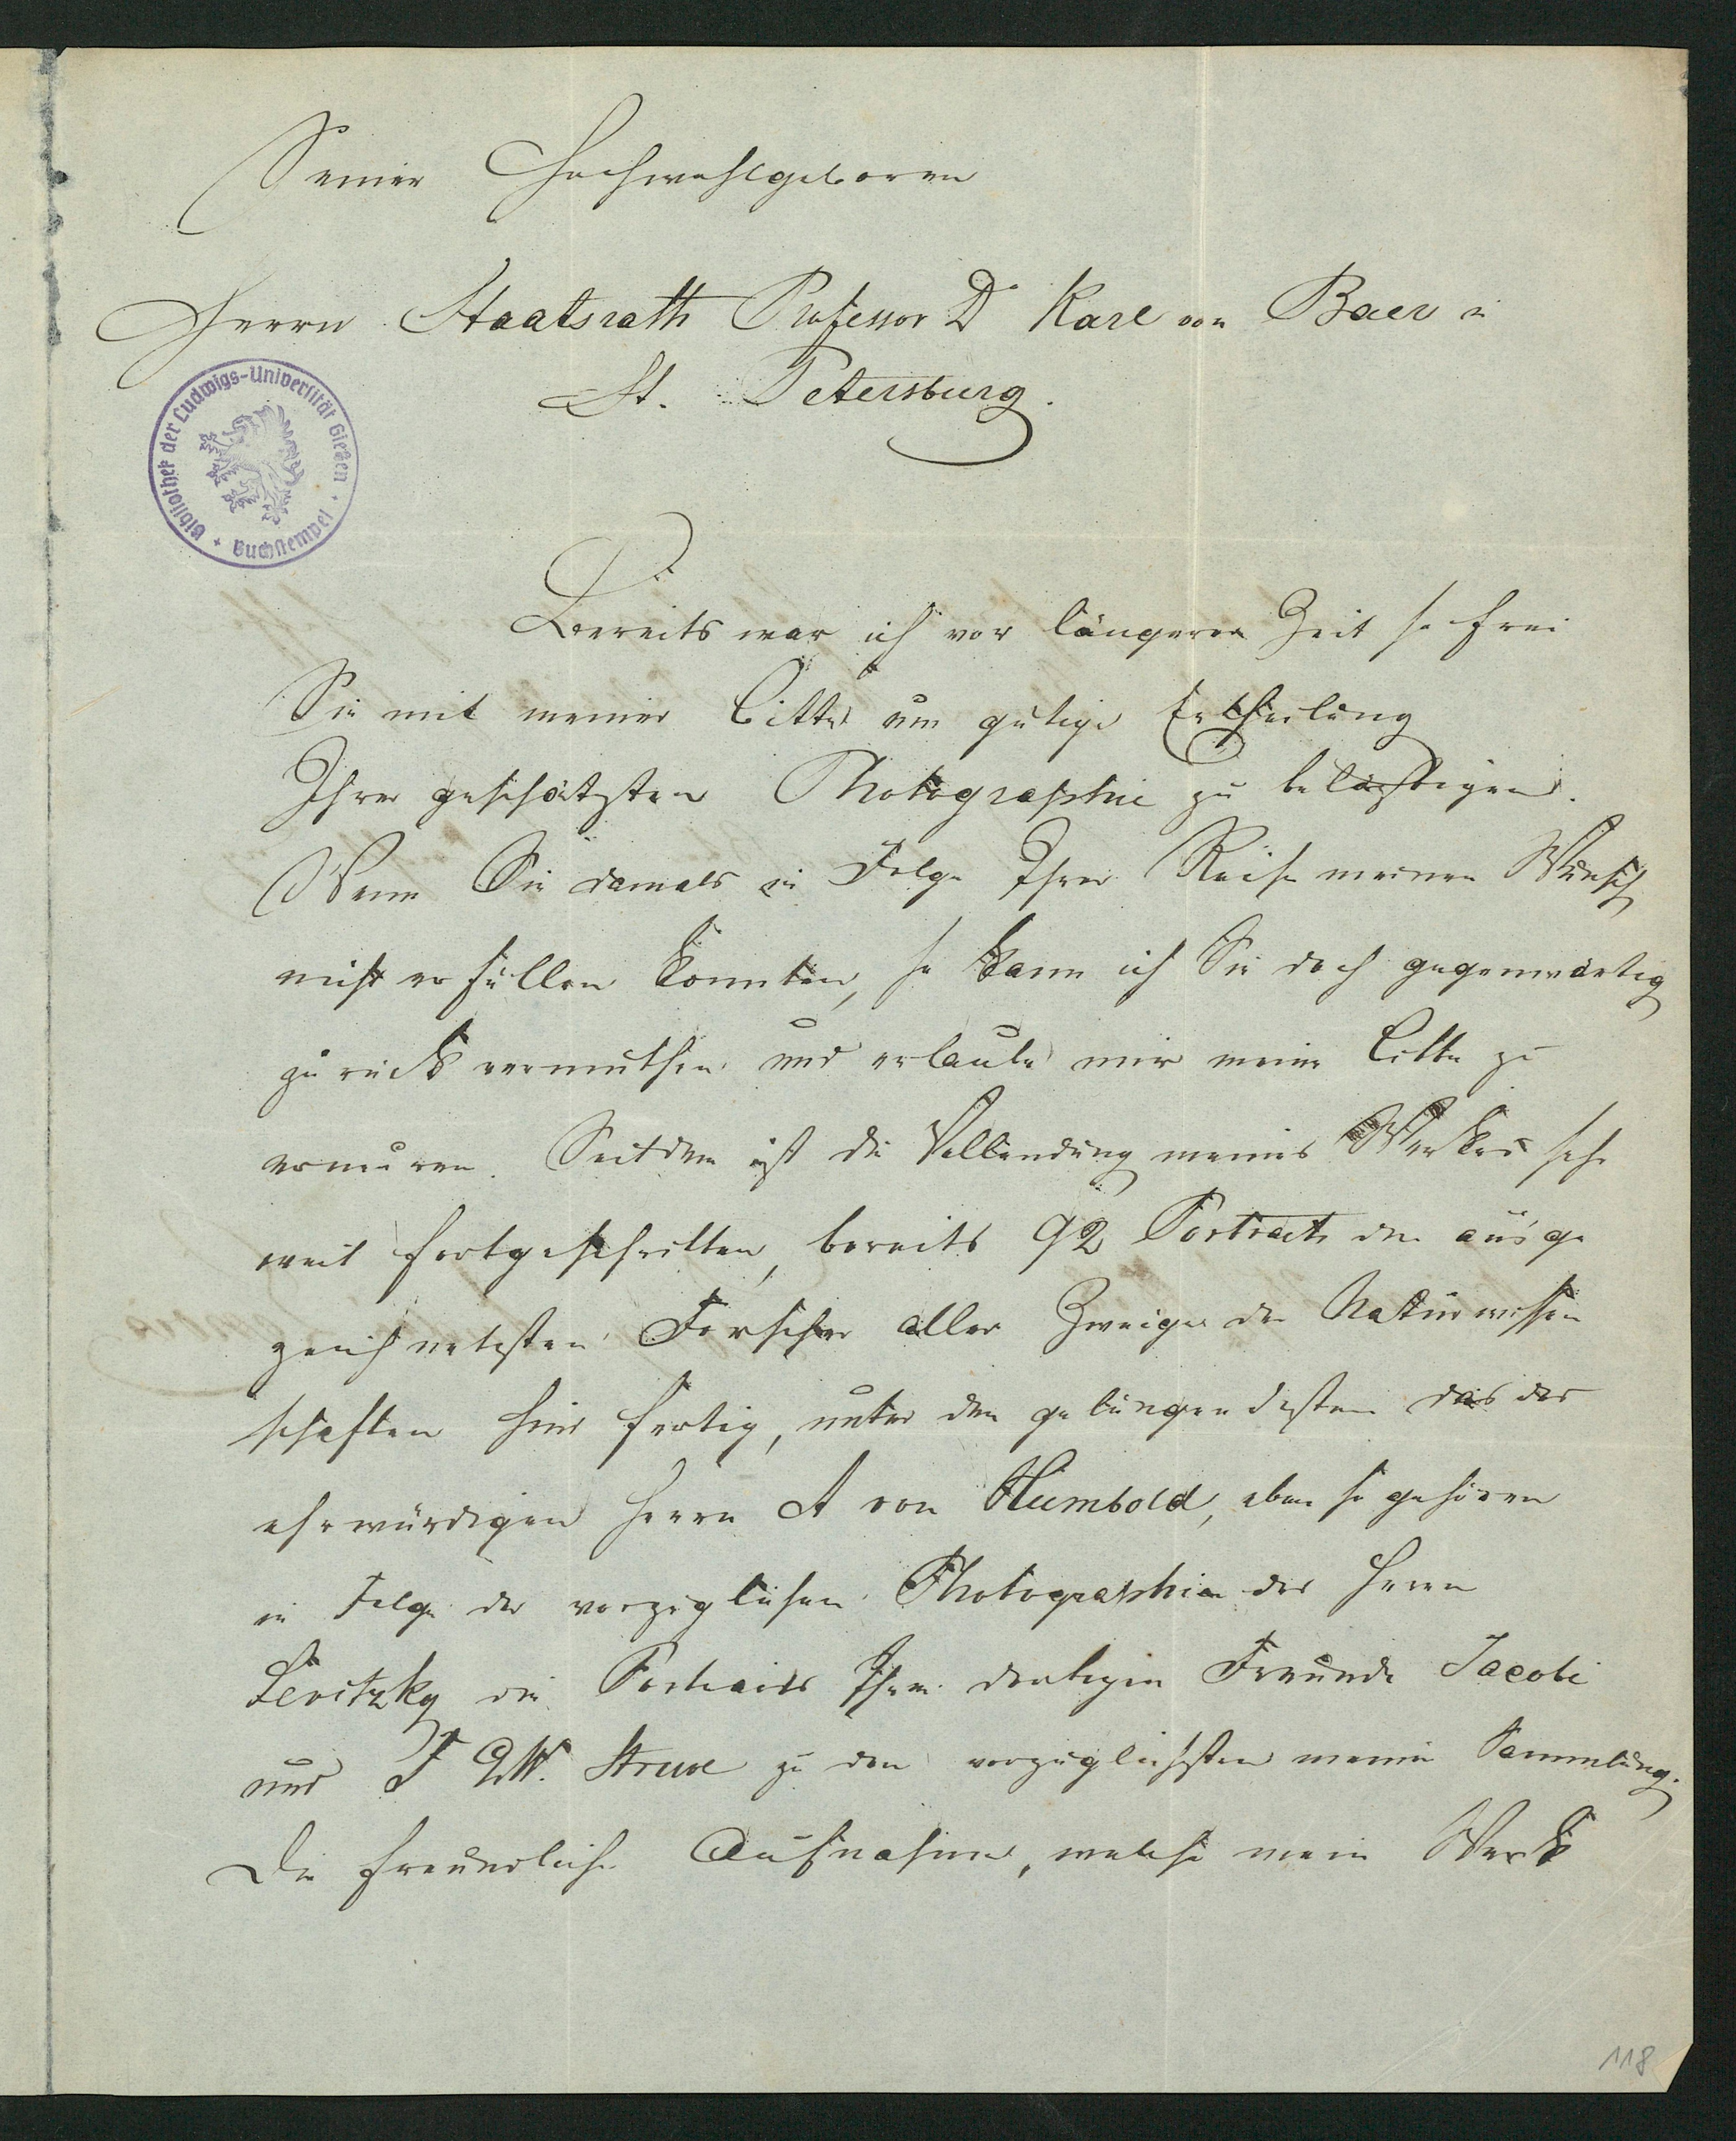 Seiner Hochwohlgeboren
Herrn Staatsrath Professor Dr Karl von Baer in
St. Petersburg.
Bibliothek der Ludwigs-Universität Gießen + Buchstempel +
Bereits war ich vor längerer Zeit so frei
Sie mit meiner Bitte um gütige Ertheilung
Ihrer geschätzten Photographie zu belästigen.
Wenn Sie damals in Folge Ihrer Reise meinen Wunsch
nicht erfüllen konnten, so kann ich Sie doch gegenwärtig
zurück vermuthen und erlaube mir meine Bitte zu
erneuren. Seitdem ist die Vollendung meines Werkes sehr
weit fortgeschritten, bereits 92 Portraits der ausge
zeichnetesten Forscher aller Zweige der Naturwissen
schaften sind fertig, unter den gelungendsten das des
ehrwürdigen Herrn A von Humbold, eben so gehören
in Folge der vorzüglichen Photographien des Herrn
Levitzky die Portraits Ihrer dortigen Freunde Jacobi
und F G W. Struve zu den vorzüglichsten meiner Sammlung.
Die freundliche Aufnahme, welche mein Werk
118